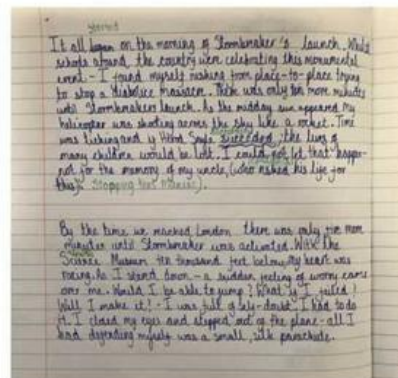 started
It all began on the morning of Stormbreaker's launch. Whilst
schools around, the country were celebrating this monumental
event - I found myself rushing from place-to-place trying
to stop a diabolical massacre. There was only ten more minutes
until Stormbreakers launch. As the midday sun appeared my
helicopter was shooting across the sky like a rocket. Time
was ticking and if Herod Sayle succeeded, the lives of
many children would be lost. I could not let that happen-
not for the memory of my uncle, (who risked his life for
this). Stopping this maniac).
By the time we reached London there was only five more
minutes until Stormbreaker was activated. With the
Science Museum ten thousand feet below, my heart was
racing. As I stared down - a sudden feeling of worry came
over me. Would I be able to jump? What if I failed?
Will I make it! - I was full of self-doubt. I had to do
it. I closed my eyes and stepped out of the plane - all I
had defending myself was a small, silk parachute.